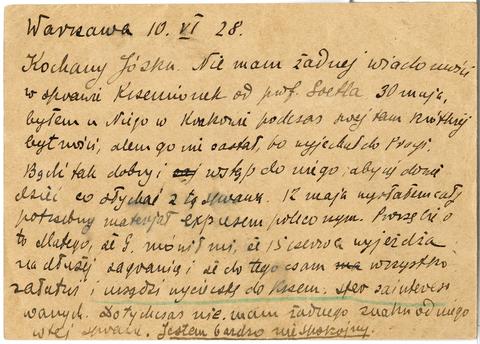 Warszawa 10. VI 28.
Kochany Józku. Nie mam żadnej wiadomości
w sprawie Krzemionek od prof. Goetla 30 maja,
byłem u Niego w Krakowie podczas swej tam krótkiej
bytności, alem go nie zastał, bo wyjechał do Pragi.
Bądź tak dobry i wstąp do niego, aby się dowie
dzieć co słychać z tą sprawą. 12 maja wysłałem cały
potrzebny materjał expresem poleconym. Proszę Cię o
to dlatego, że G. mówił mi, że 15 czerwca wyjeżdża
na dłużej zagranicę i że do tego czasu wszystko
załatwi i urządzi wycieczkę do Krzem. sfer zaintereso
wanych. Dotychczas nie mam żadnego znaku od niego
w tej sprawie. Jestem bardzo niespokojny.